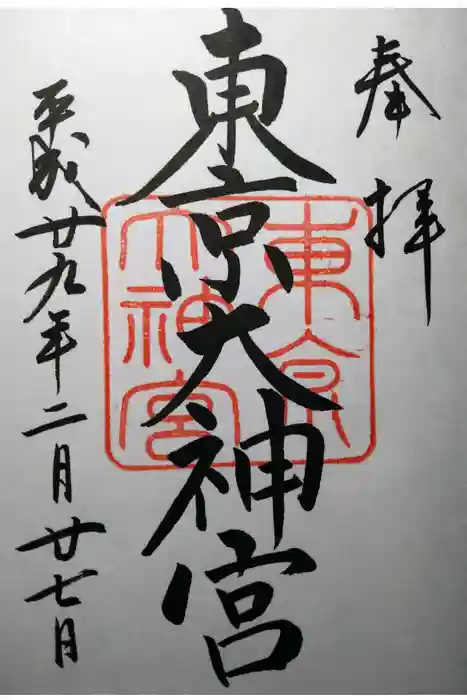 奉拝
東京大神宮
東京大神宮
平成廿九年二月廿七日